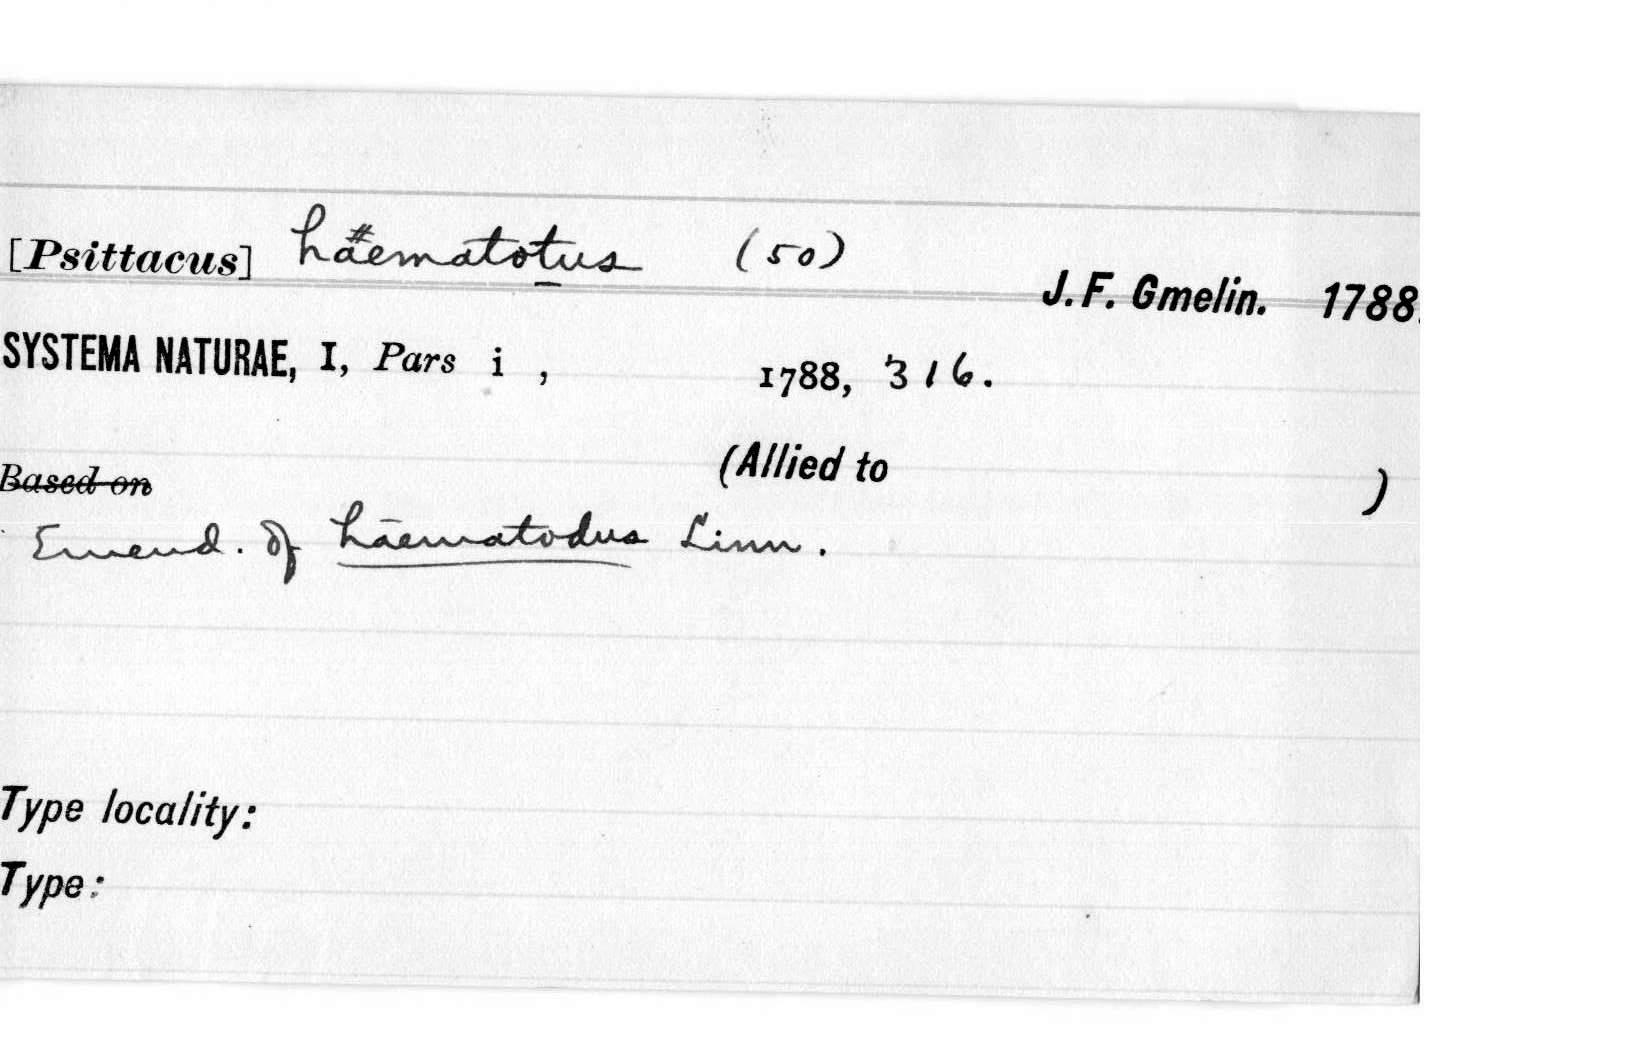 [Psittacus] haematotus (50)
J. F. Gmelin. 1788.
SYSTEMA NATURAE, I, Pars i , 1788, 316.
(Allied to )
Based on
Emend. of haematodus Linn.
Type locality:
Type: